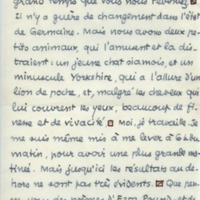 grand temps que vous nous reveniez.
Il n'y a guère de changement dans l'état
de Germaine. Mais nous avons deux pe-
tits animaux, qui l'amusent et la dis-
traient : un jeune chat siamois, et un
minuscule Yorkshire, qui a l'allure d'un
lion de poche, et, malgré les cheveux qui
lui couvrent les yeux, beaucoup de fi-
nesse et de vivacité. Moi, j'ai travaillé. Je
me suis même mis à me lever à 6 h. du
matin, pour avoir une plus grande ma-
tinée. Mais jusqu'ici les résultats au de-
hors ne sont pas très évidents. Que pen-